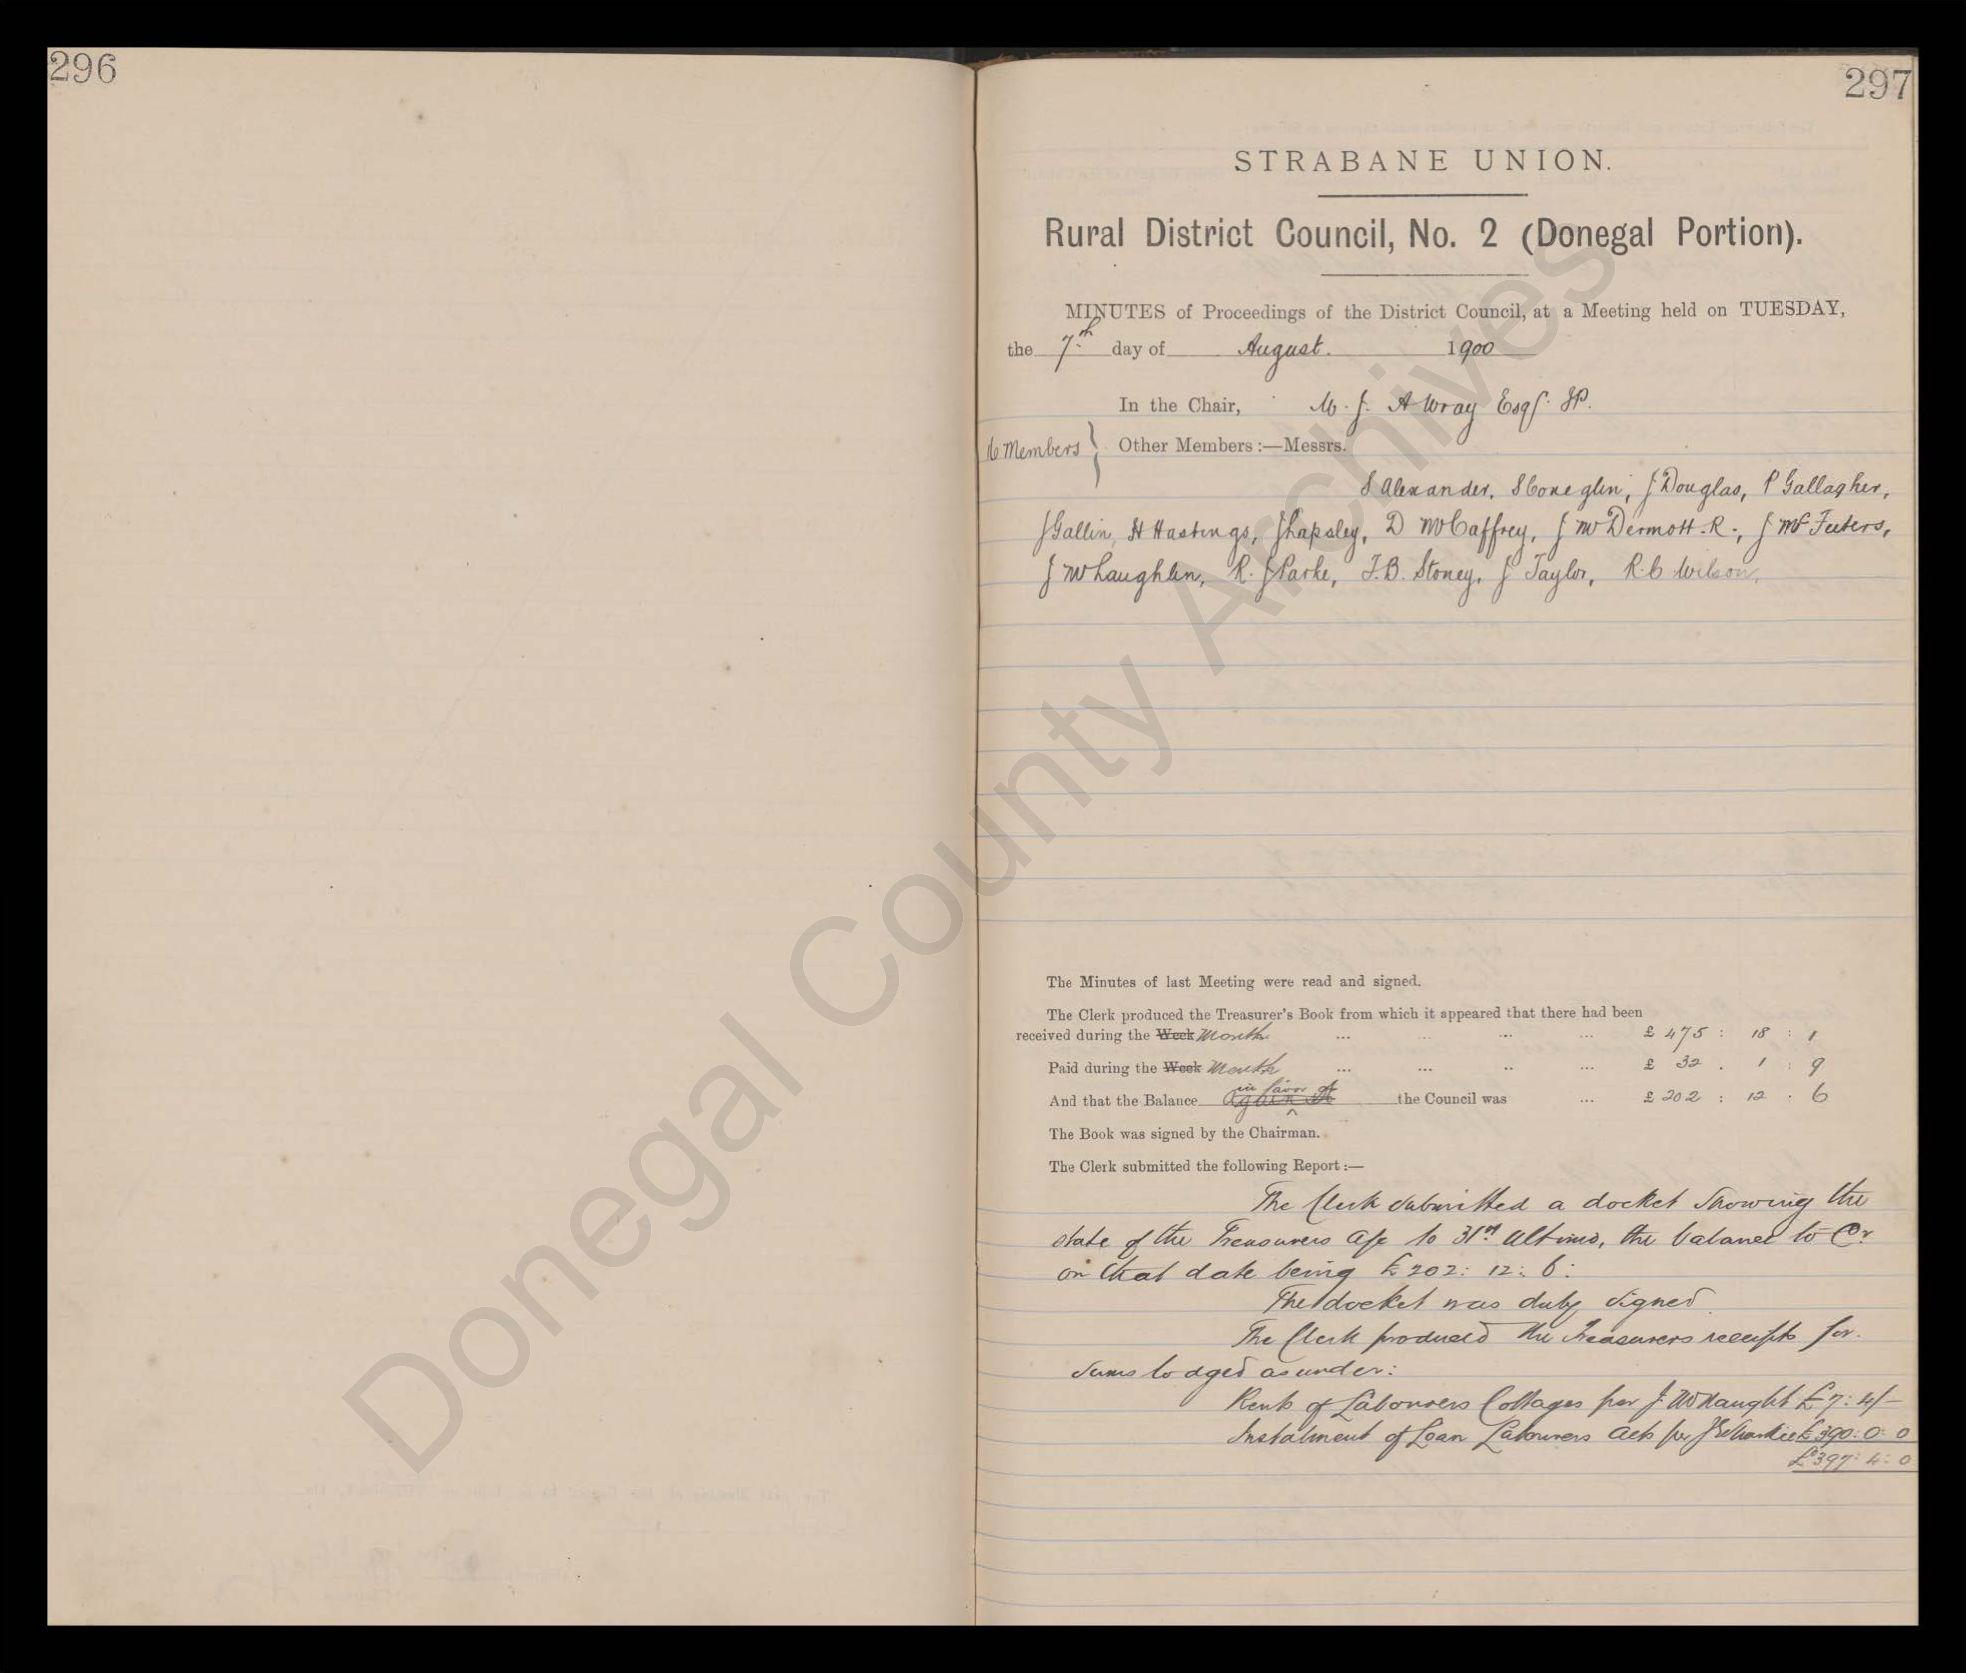 296
297
STRABANE UNION.
Rural District Council, No. 2 (Donegal Portion).
MINUTES of Proceedings of the District Council, at a Meeting held on TUESDAY,
the 7th day of August. 1900
In the Chair, M. J. A Wray Esqr. JP.
16 Members } Other Members :—Messrs.
S Alexander, S Coneglin, J Douglas, P Gallagher,
J Gallin, H Hastings, J Lapsley, D McCaffrey, J McDermott. R., J McFeeters,
J McLaughlin, R. J Parke, F.B. Stoney, J Taylor, R. C Wilson,
The Minutes of last Meeting were read and signed.
The Clerk produced the Treasurer's Book from which it appeared that there had been
received during the Week Month ... ... ... ... £ 475 : 18 : 1
Paid during the Week Month ... ... .. ... £ 32 . 1 : 9
in favor of
And that the Balance Against the Council was ... £ 202 : 12 . 6
The Book was signed by the Chairman.
The Clerk submitted the following Report :—
The Clerk submitted a docket showing the
state of the Treasurers a/c to 31st Ultimo, the balance to Cr.
on that date being £202: 12: 6:
The docket was duly signed
The Clerk produced the Treasurers receipts for.
sums lodged as under:
Rents of Labourers Cottages per J. McNaught £7: 4/-
Instalment of Loan Labourers Acts per £390: 0: 0
£397: 4: 0
Donegal County Archives